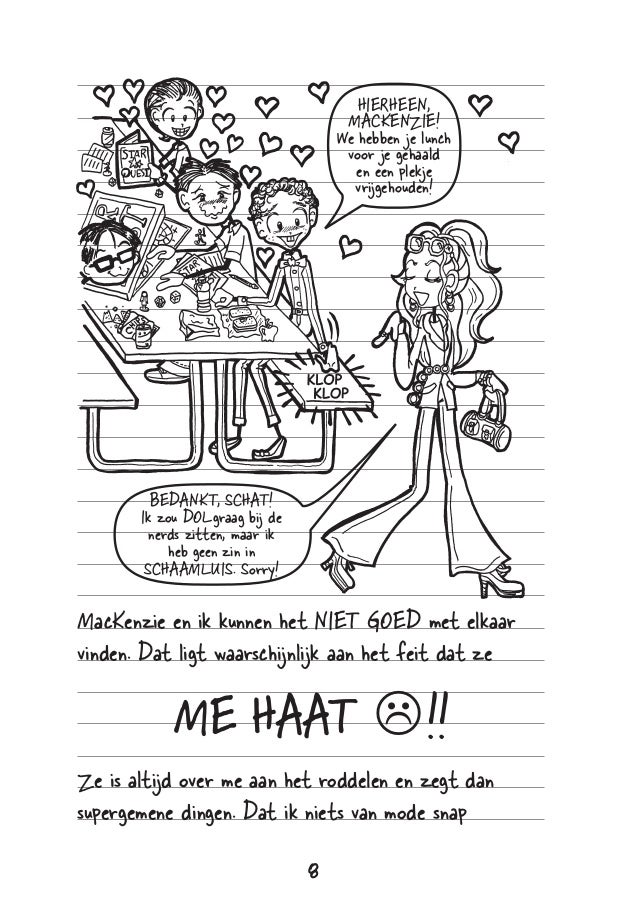 HIERHEEN,
MACKENZIE!
We hebben je lunch
voor je gehaald
en een plekje
vrijgehouden!
STAR
QUEST
STAR
KLOP
KLOP
BEDANKT, SCHAT!
Ik zou DOLgraag bij de
nerds zitten, maar ik
heb geen zin in
SCHAAMLUIS. Sorry!
MacKenzie en ik kunnen het NIET GOED met elkaar
vinden. Dat ligt waarschijnlijk aan het feit dat ze
ME HAAT ☹!!
Ze is altijd over me aan het roddelen en zegt dan
supergemene dingen. Dat ik niets van mode snap
8